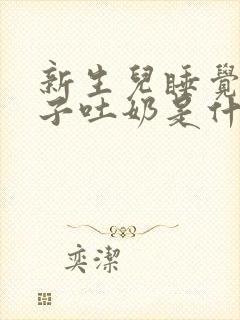 新生兒睡覺
子吐奶是什
奕潔